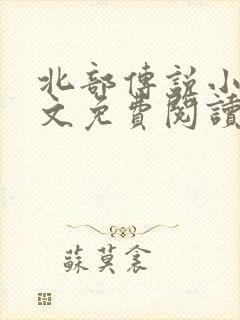 北部傳說小
文免費閱讀
蘇莫衾